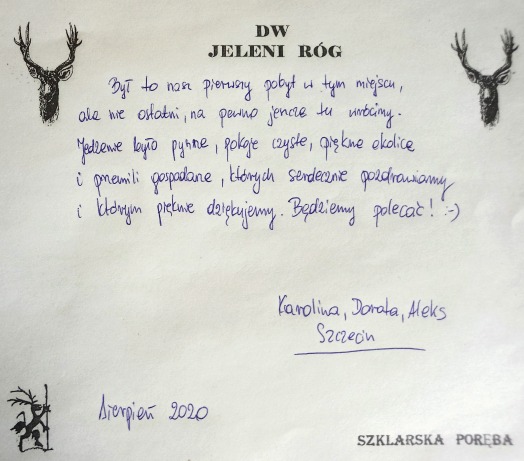 DW
JELENI RÓG
Był to nasz pierwszy pobyt w tym miejscu,
ale nie ostatni, na pewno jeszcze tu wrócimy.
Jedzenie było pyszne, pokoje czyste, piękne okolice
i przemili gospodarze, których serdecznie pozdrawiamy
i którym pięknie dziękujemy. Będziemy polecać! :-)
Karolina, Dorota, Aleks
Szczecin
Sierpień 2020
SZKLARSKA PORĘBA